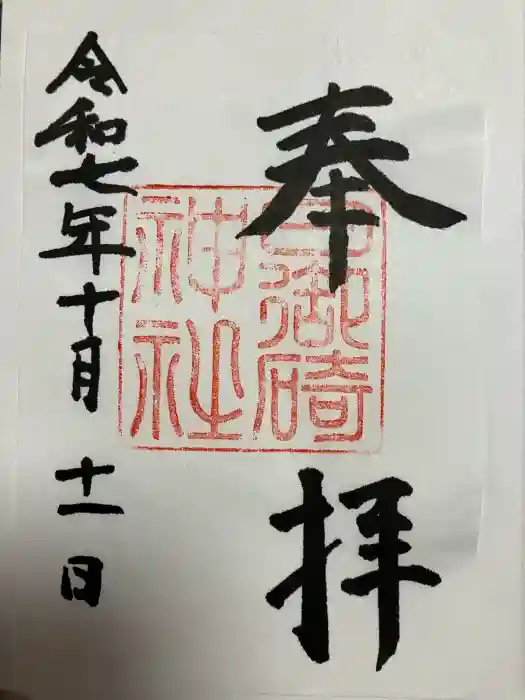 奉拝
日御碕
神社
令和七年十月十一日